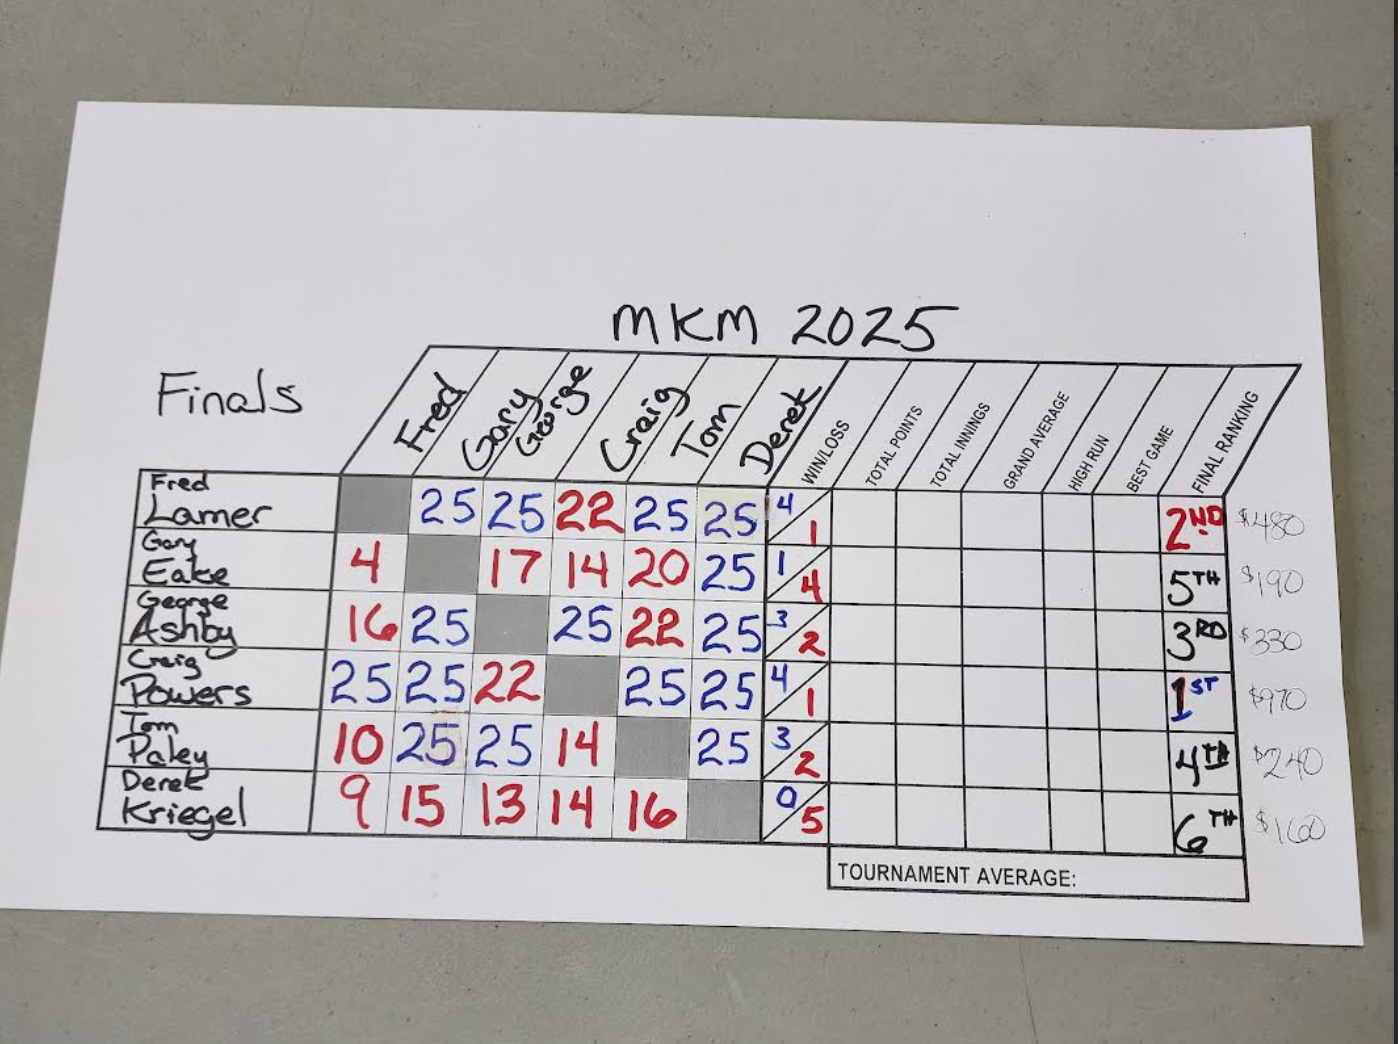 MKM 2025
Finals
Fred Gary George Craig Tom Derek WIN/LOSS TOTAL POINTS TOTAL INNINGS GRAND AVERAGE HIGH RUN BEST GAME FINAL RANKING
Fred Lamer 25 25 22 25 25 4/1 2ND $480
Gary Eake 4 17 14 20 25 1/4 5TH $190
George Ashby 16 25 25 22 25 3/2 3RD $330
Craig Powers 25 25 22 25 25 4/1 1ST $970
Tom Paley 10 25 25 14 25 3/2 4TH $240
Derek Kriegel 9 15 13 14 16 0/5 6TH $160
TOURNAMENT AVERAGE: